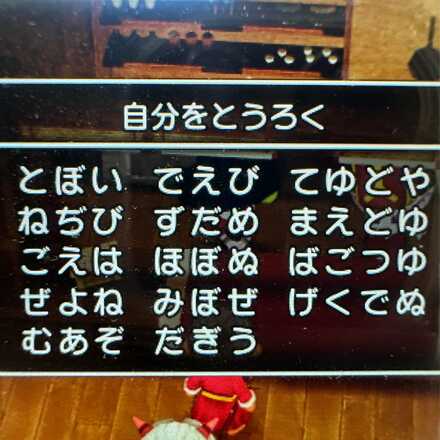 自分をとうろく
とぼい でえび てゆどや
ねぢび ずだめ まえどゆ
ごえは ほぼぬ ばごつゆ
ぜよね みぼぜ げくでぬ
むあぞ だぎう